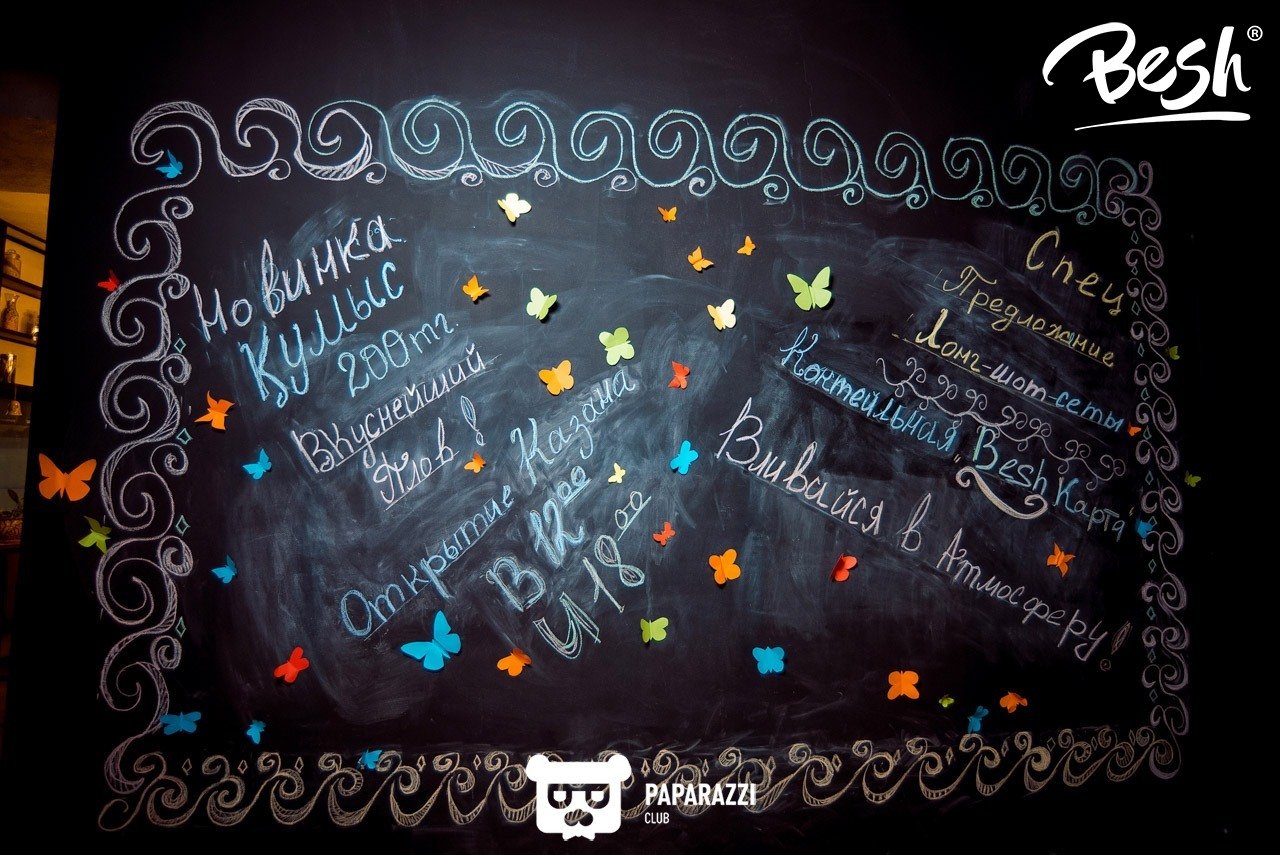 Besh®
Новинка
Кумыс
200тг.
Вкуснейший
Плов!
Открытие Казана
В 12 00
И 18 00
Спец
Предложание
Лонг-шот-сеты
Коктейльная
"Besh Карта"
Вливайся в Атмосферу!
PAPARAZZI
CLUB